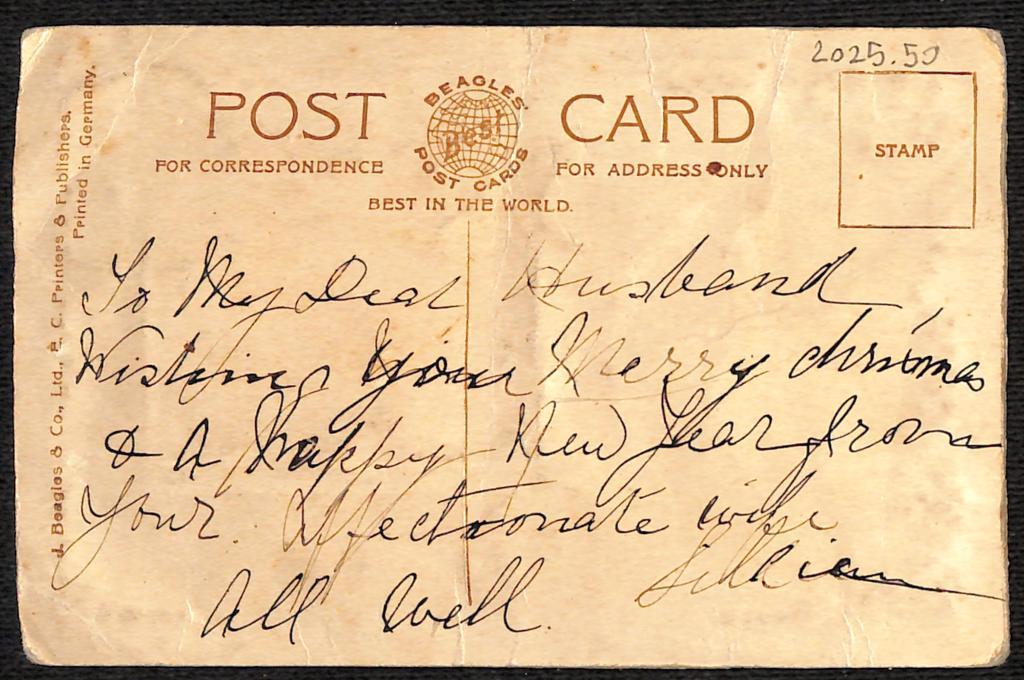 2025.50
POST CARD
BEAGLES' Best POST CARDS
FOR CORRESPONDENCE FOR ADDRESS ONLY
BEST IN THE WORLD.
STAMP
J. Beagles & Co., Ltd., E. C. Printers & Publishers.
Printed in Germany.
To My Dear Husband
Wishing You a Merry chrismas
& A Happy New Year from
Your Affectionate wife
Lillian
All Well.